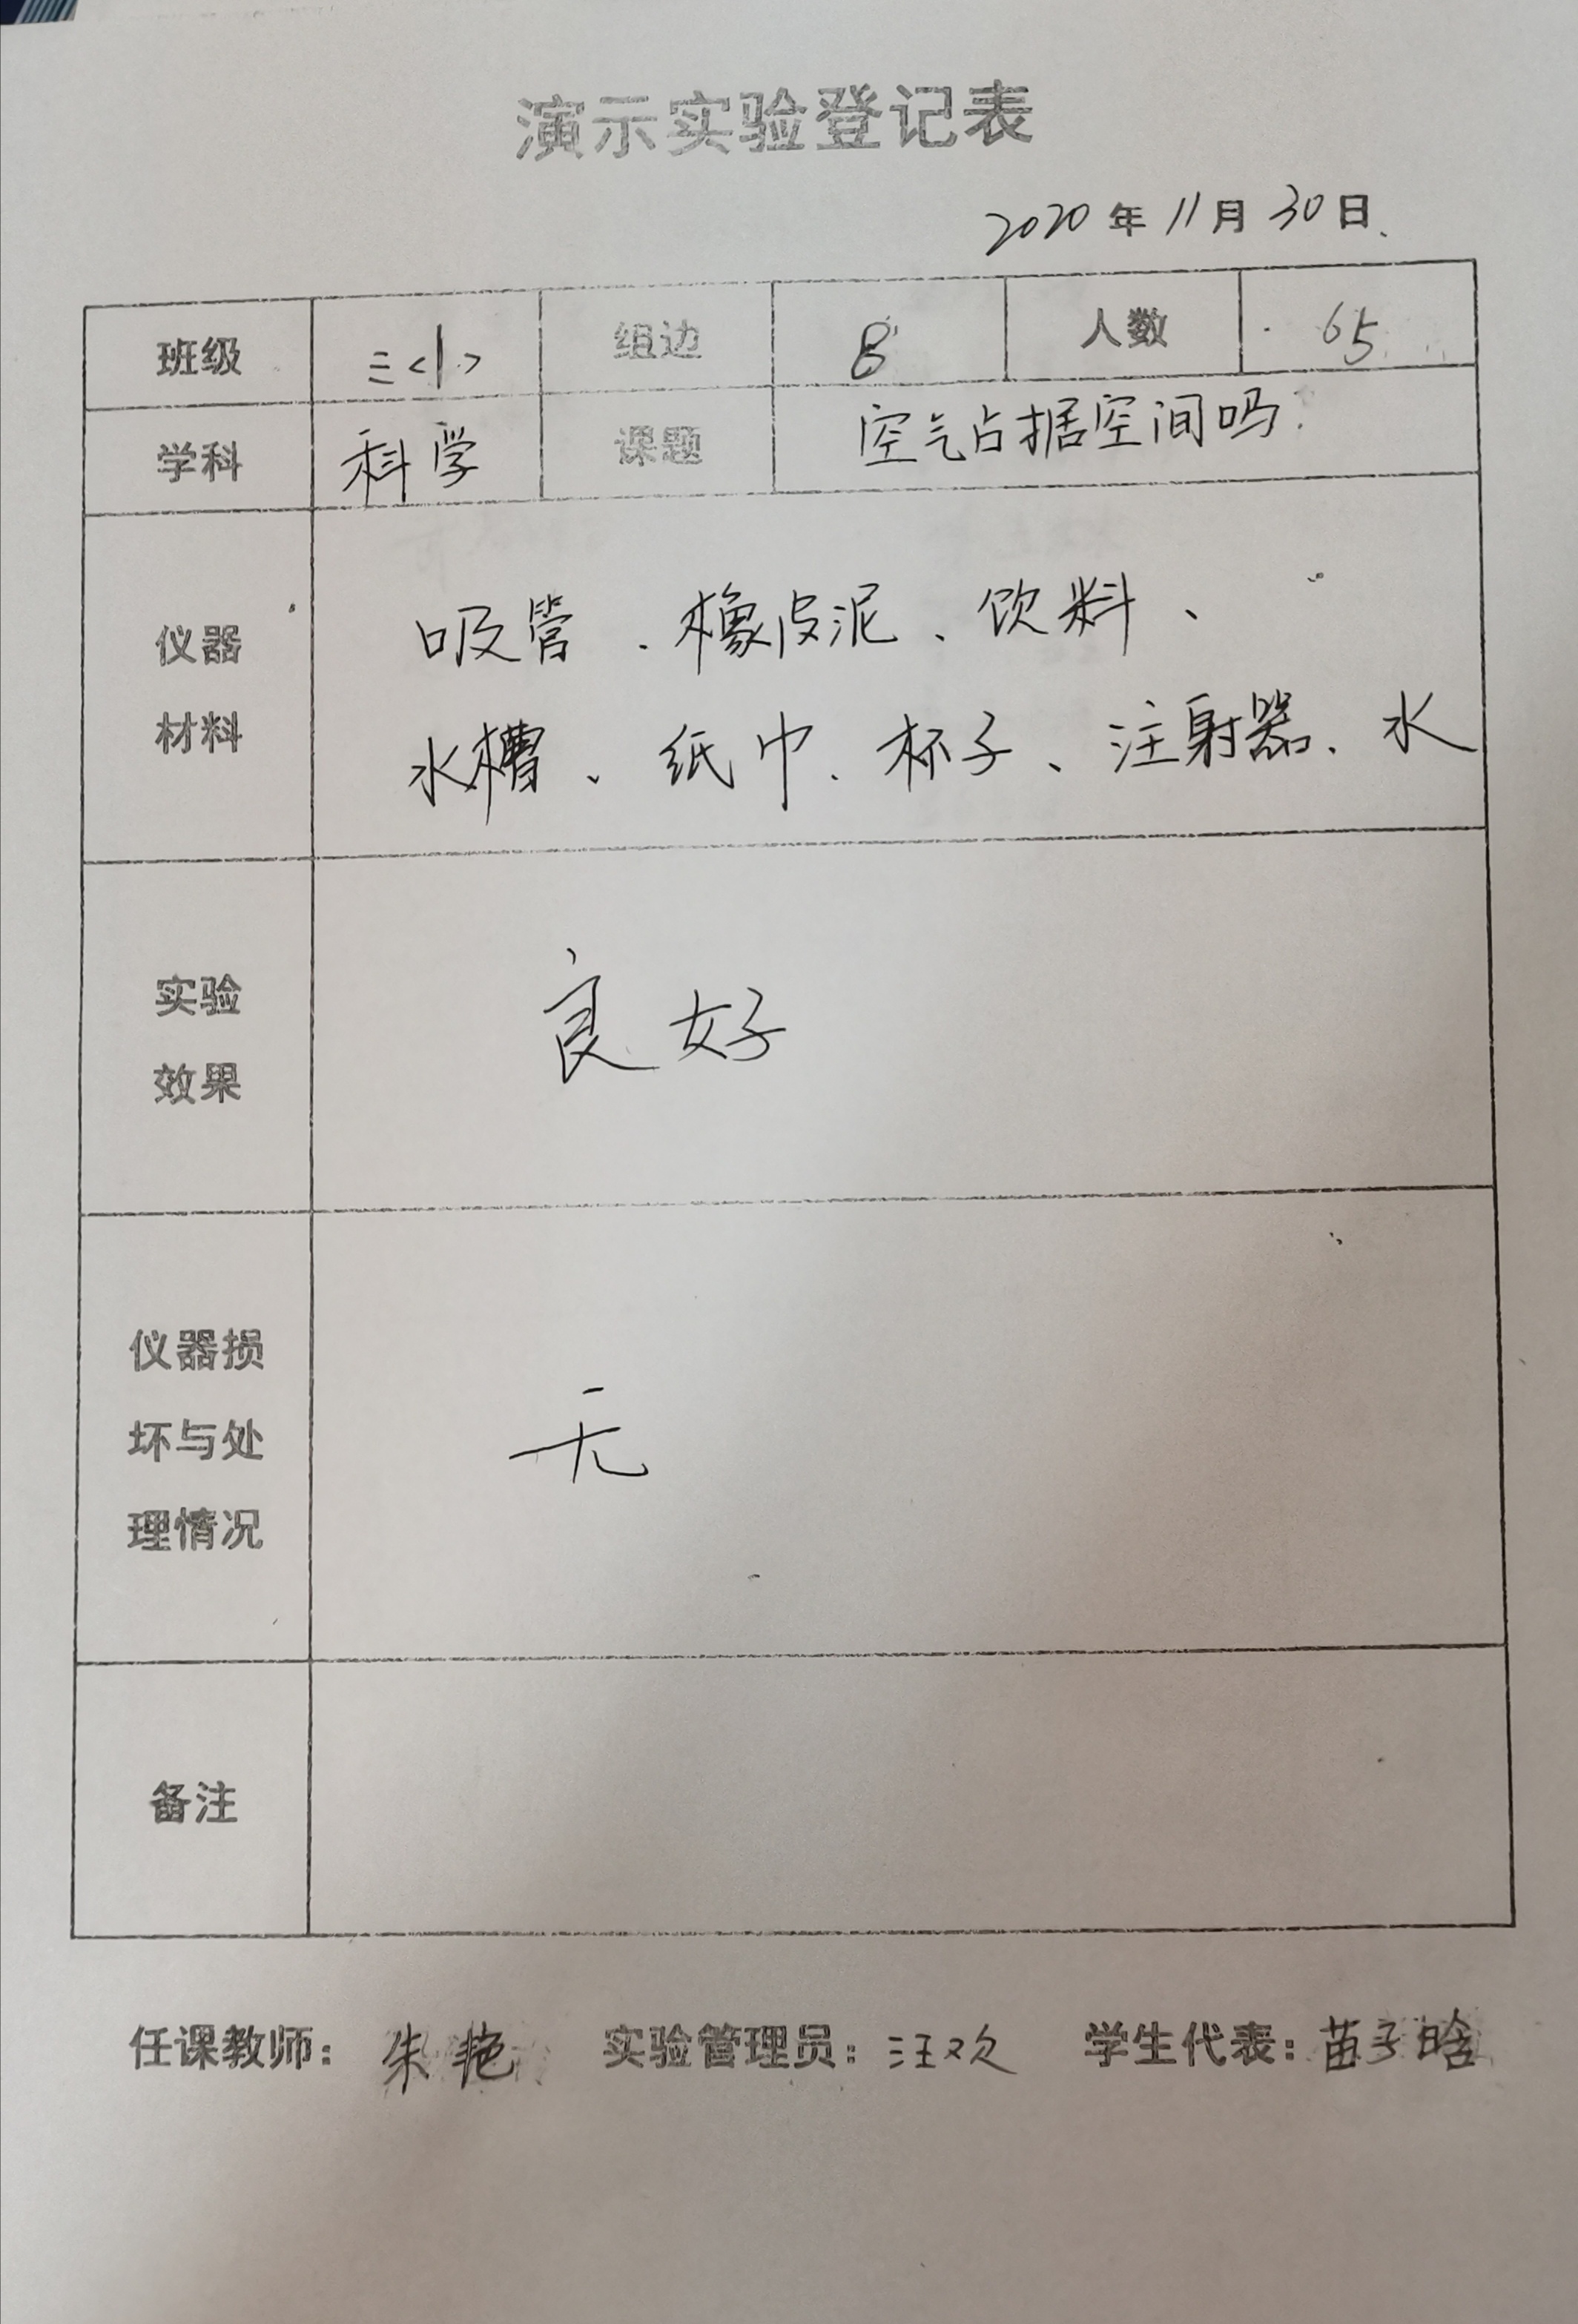 演示实验登记表
2020年11月30日
班级 三<1> 组边 8 人数 65
学科 科学 课题 空气占据空间吗?
仪器材料 吸管、橡皮泥、饮料、
水槽、纸巾、杯子、注射器、水
实验效果 良好
仪器损坏与处理情况 无
备注
任课教师: 朱艳 实验管理员: 汪欢 学生代表: 苗子